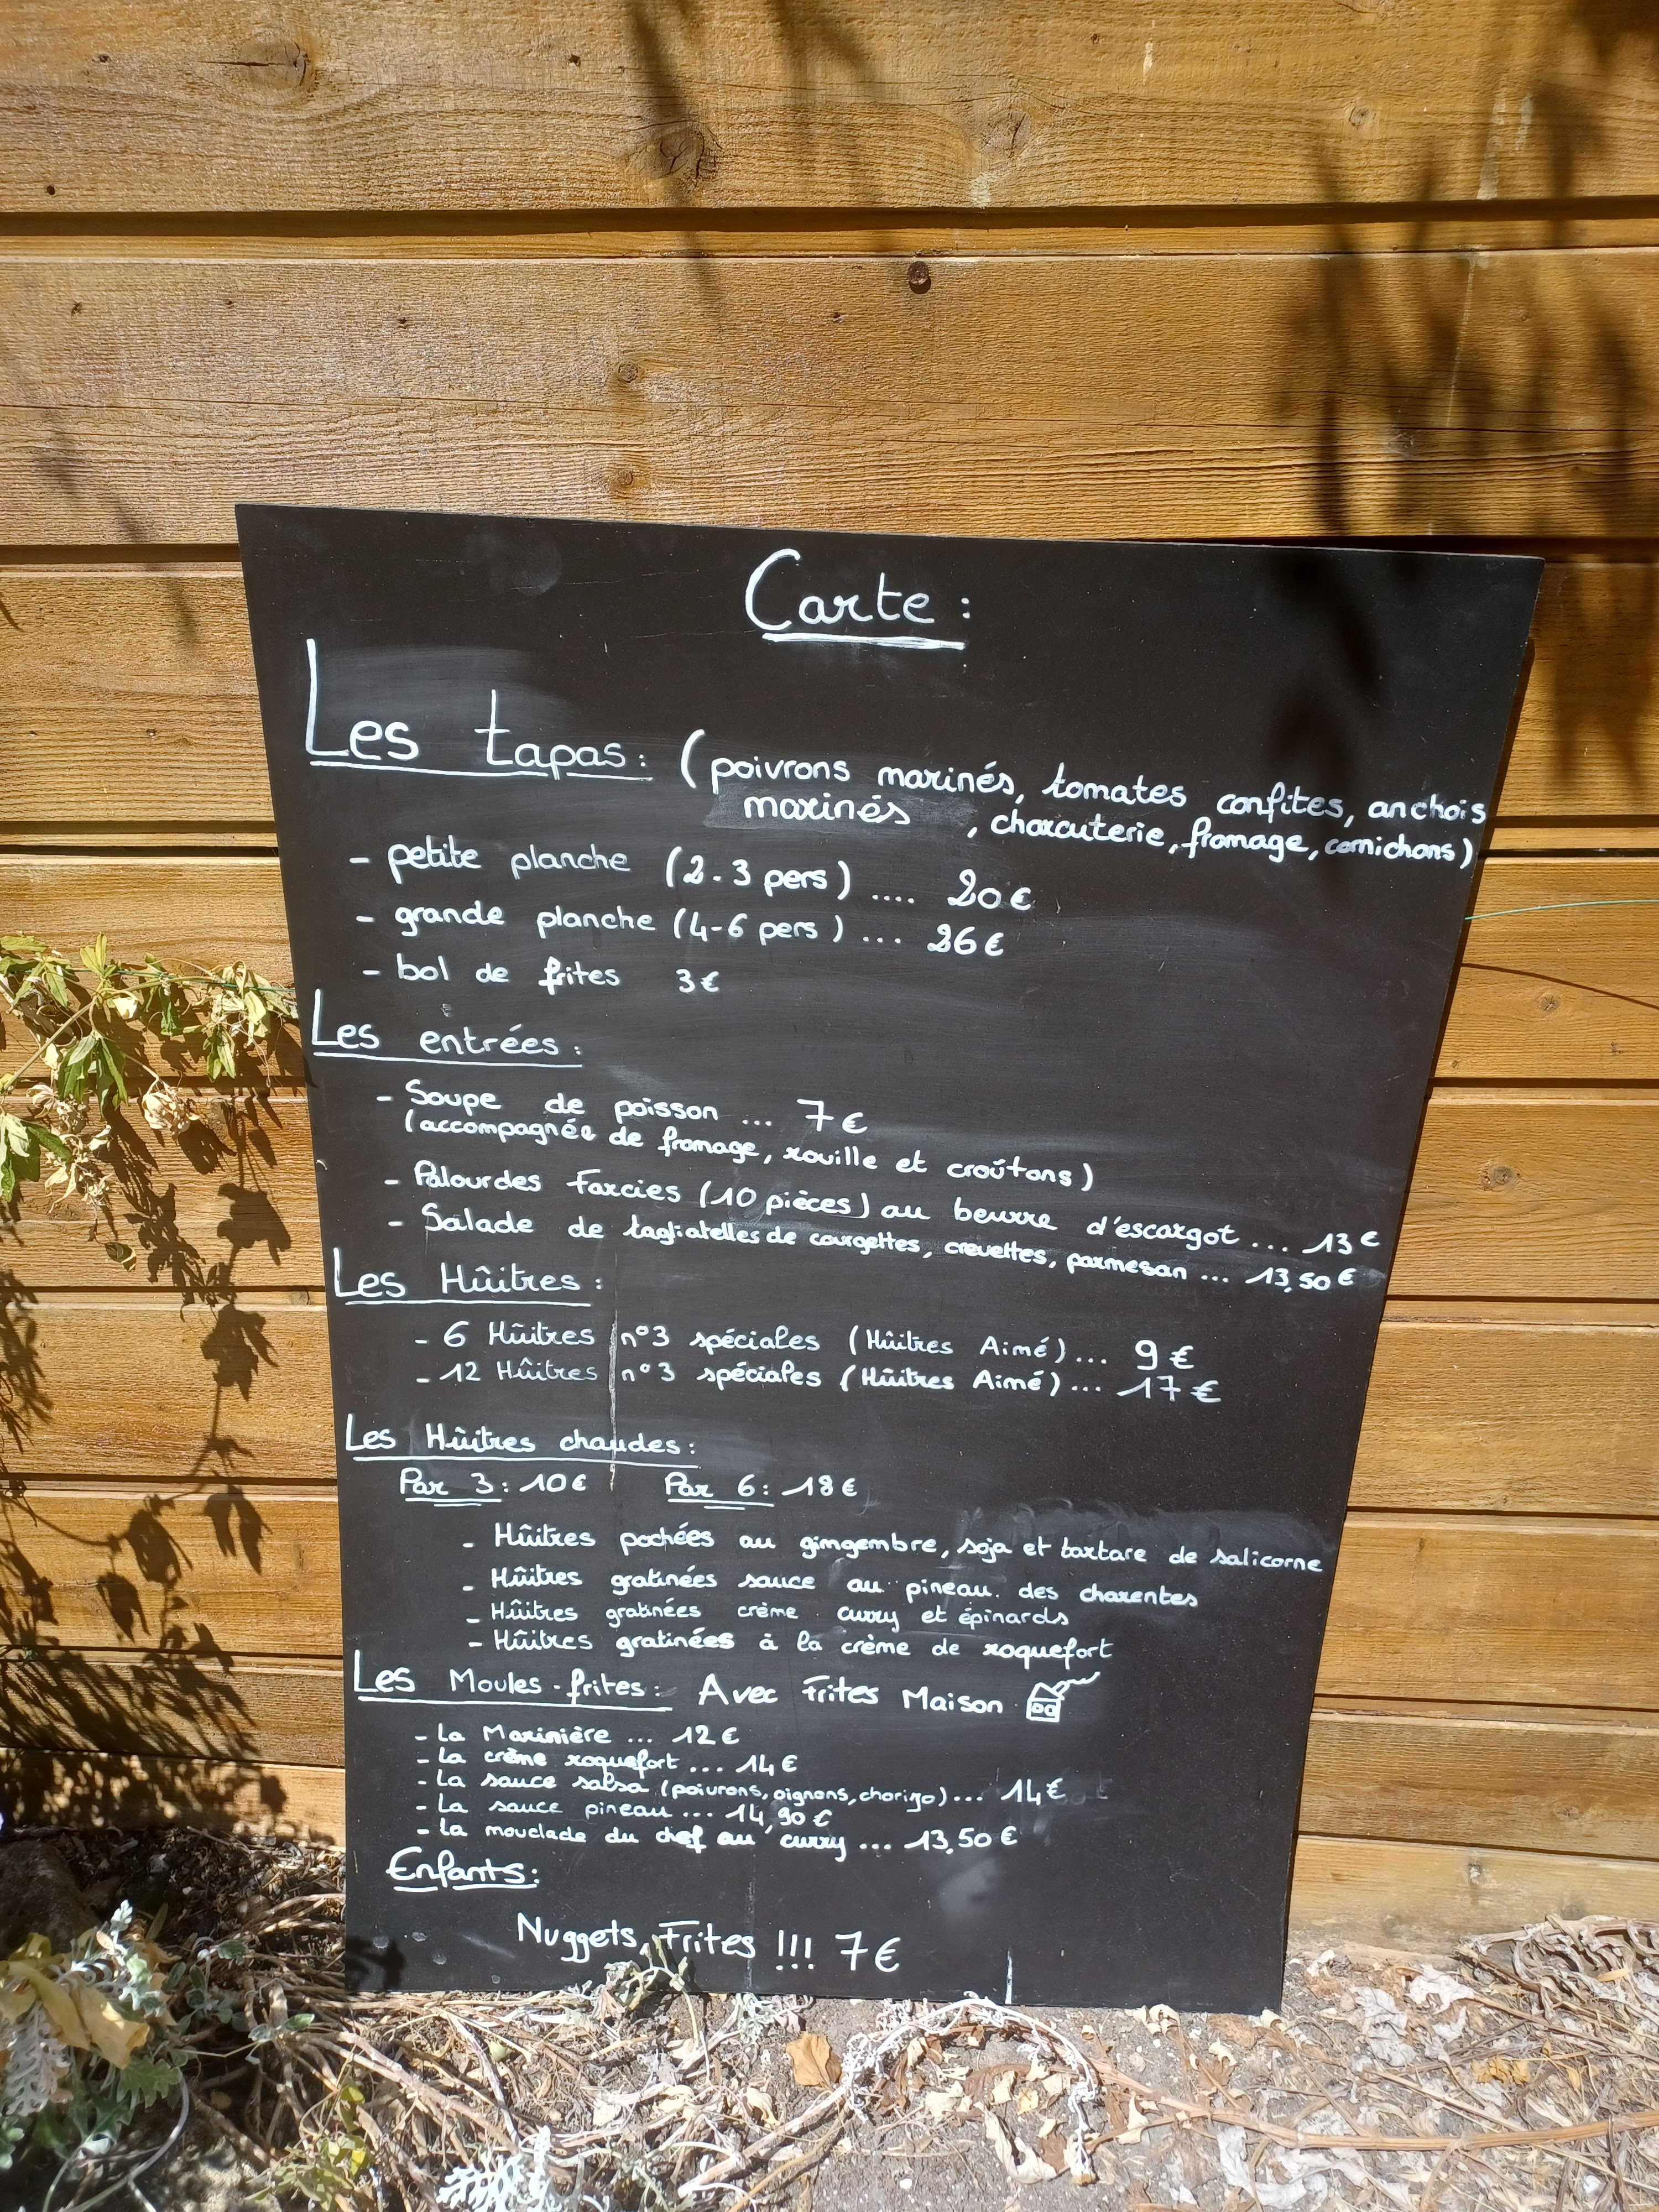 Carte :
Les tapas : (poivrons marinés, tomates confites, anchois
marinés , charcuterie, fromage, cornichons)
- petite planche (2-3 pers) .... 20€
- grande planche (4-6 pers) ... 26€
- bol de frites 3€
Les entrées :
- Soupe de poisson ... 7€
(accompagnée de fromage, rouille et croûtons)
- Palourdes Farcies (10 pièces) au beurre d'escargot ... 13€
- Salade de tagliatelles de courgettes, crevettes, parmesan ... 13,50€
Les Hûitres :
- 6 Hûitres n°3 spéciales (Hûitres Aimé) ... 9€
- 12 Hûitres n°3 spéciales (Hûitres Aimé) ... 17€
Les Hûitres chaudes :
Par 3 : 10€ Par 6 : 18€
- Hûitres pochées au gimgembre, soja et tartare de salicorne
- Hûitres gratinées sauce au pineau des charentes
- Hûitres gratinées crème curry et épinards
- Hûitres gratinées à la crème de roquefort
Les Moules-frites : Avec Frites Maison
- La Marinière ... 12€
- La crème roquefort ... 14€
- La sauce salsa (poivrons, oignons, chorizo) ... 14€
- La sauce pineau ... 14,90€
- La mouclade du chef au curry ... 13,50€
Enfants :
Nuggets, Frites !!! 7€